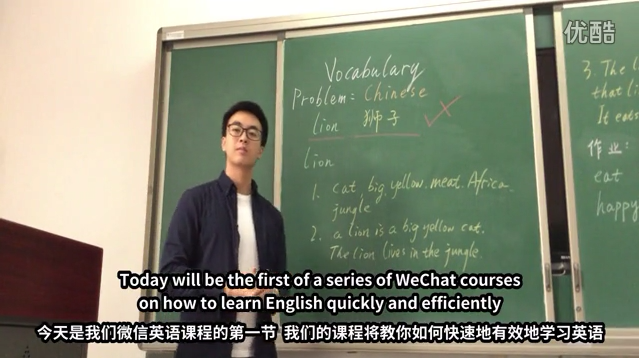 优酷
Vocabulary
Problem: Chinese
lion 狮子
lion
1. cat. big. yellow. meat. Africa.
jungle
2. a lion is a big yellow cat.
The lion lives in the jungle.
3. The l
that li
It eats
作业:
eat
happy
Today will be the first of a series of WeChat courses
on how to learn English quickly and efficiently
今天是我们微信英语课程的第一节 我们的课程将教你如何快速地有效地学习英语